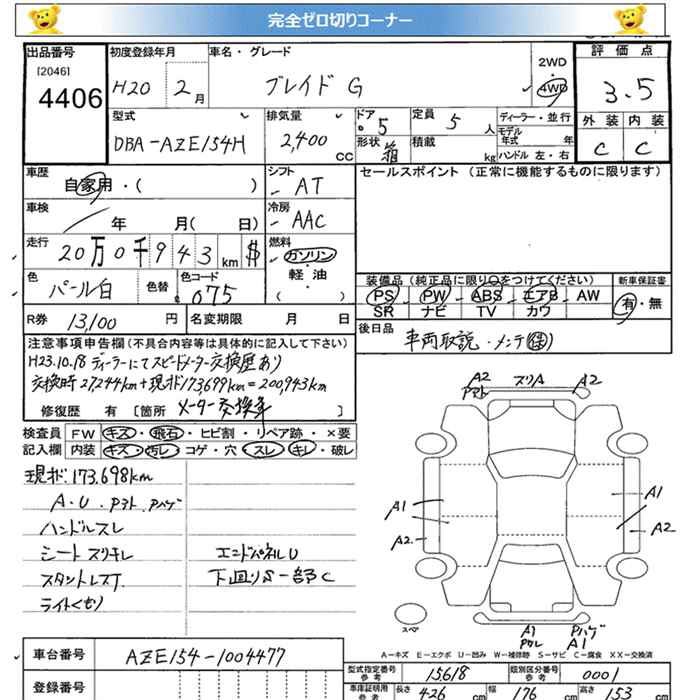 完全ゼロ切りコーナー
出品番号
[2046]
4406
初度登録年月
H20 2月
車名・グレード
ブレイド G
2WD
4WD
評価点
3.5
外装 内装
C C
型式
DBA-AZE154H
排気量
2,400 CC
ドア 5
形状 箱
定員 5 人
積載 kg
ディーラー・並行
モデル年式 年
ハンドル 左・右
車歴
自家用・( )
シフト
AT
セールスポイント (正常に機能するものに限ります)
車検
年 月( 日)
冷房
AAC
走行
20万0千943km $
燃料
ガソリン
軽・油
( )
色
パール白
色替
色コード
075
装備品(純正品に限り○をつけてください)
PS PW ABS エアB AW
SR ナビ TV カワ
新車保証書
有・無
R券 13,100 円
名変期限 月 日
後日品
車両取説・メンテ(保)
注意事項申告欄(不具合内容等は具体的に記入して下さい)
H23.10.18 ディーラーにてスピードメーター交換歴あり
交換時27,244km+現ポ173,699km=200,943km
修復歴 有 [箇所 メーター交換車 ]
検査員 FW キズ・飛石・ヒビ割・リペア跡・×要
記入欄 内装 キズ・汚レ・コゲ・穴・スレ・キレ・破レ
現ポ:173,698km
A・U・Pアト、Pハゲ
ハンドルスレ
シートスリキレ
エンドパネルU
スタントレスT.
下回りS一部C
ライトくもり
A2 スリA A2
Pアト
A1 A1
A2 A2
スペア
A1 Pハゲ
Pワレ A1
A-キズ E-エクボ U-凹み W-補修跡 S-サビ C-腐食 XX-交換済
車台番号
AZE154-1004477
型式指定番号 参考
15618
類別区分番号 参考
0001
登録番号
車庫証明用 参考
長さ 426 cm 幅 176 cm 高さ 153 cm